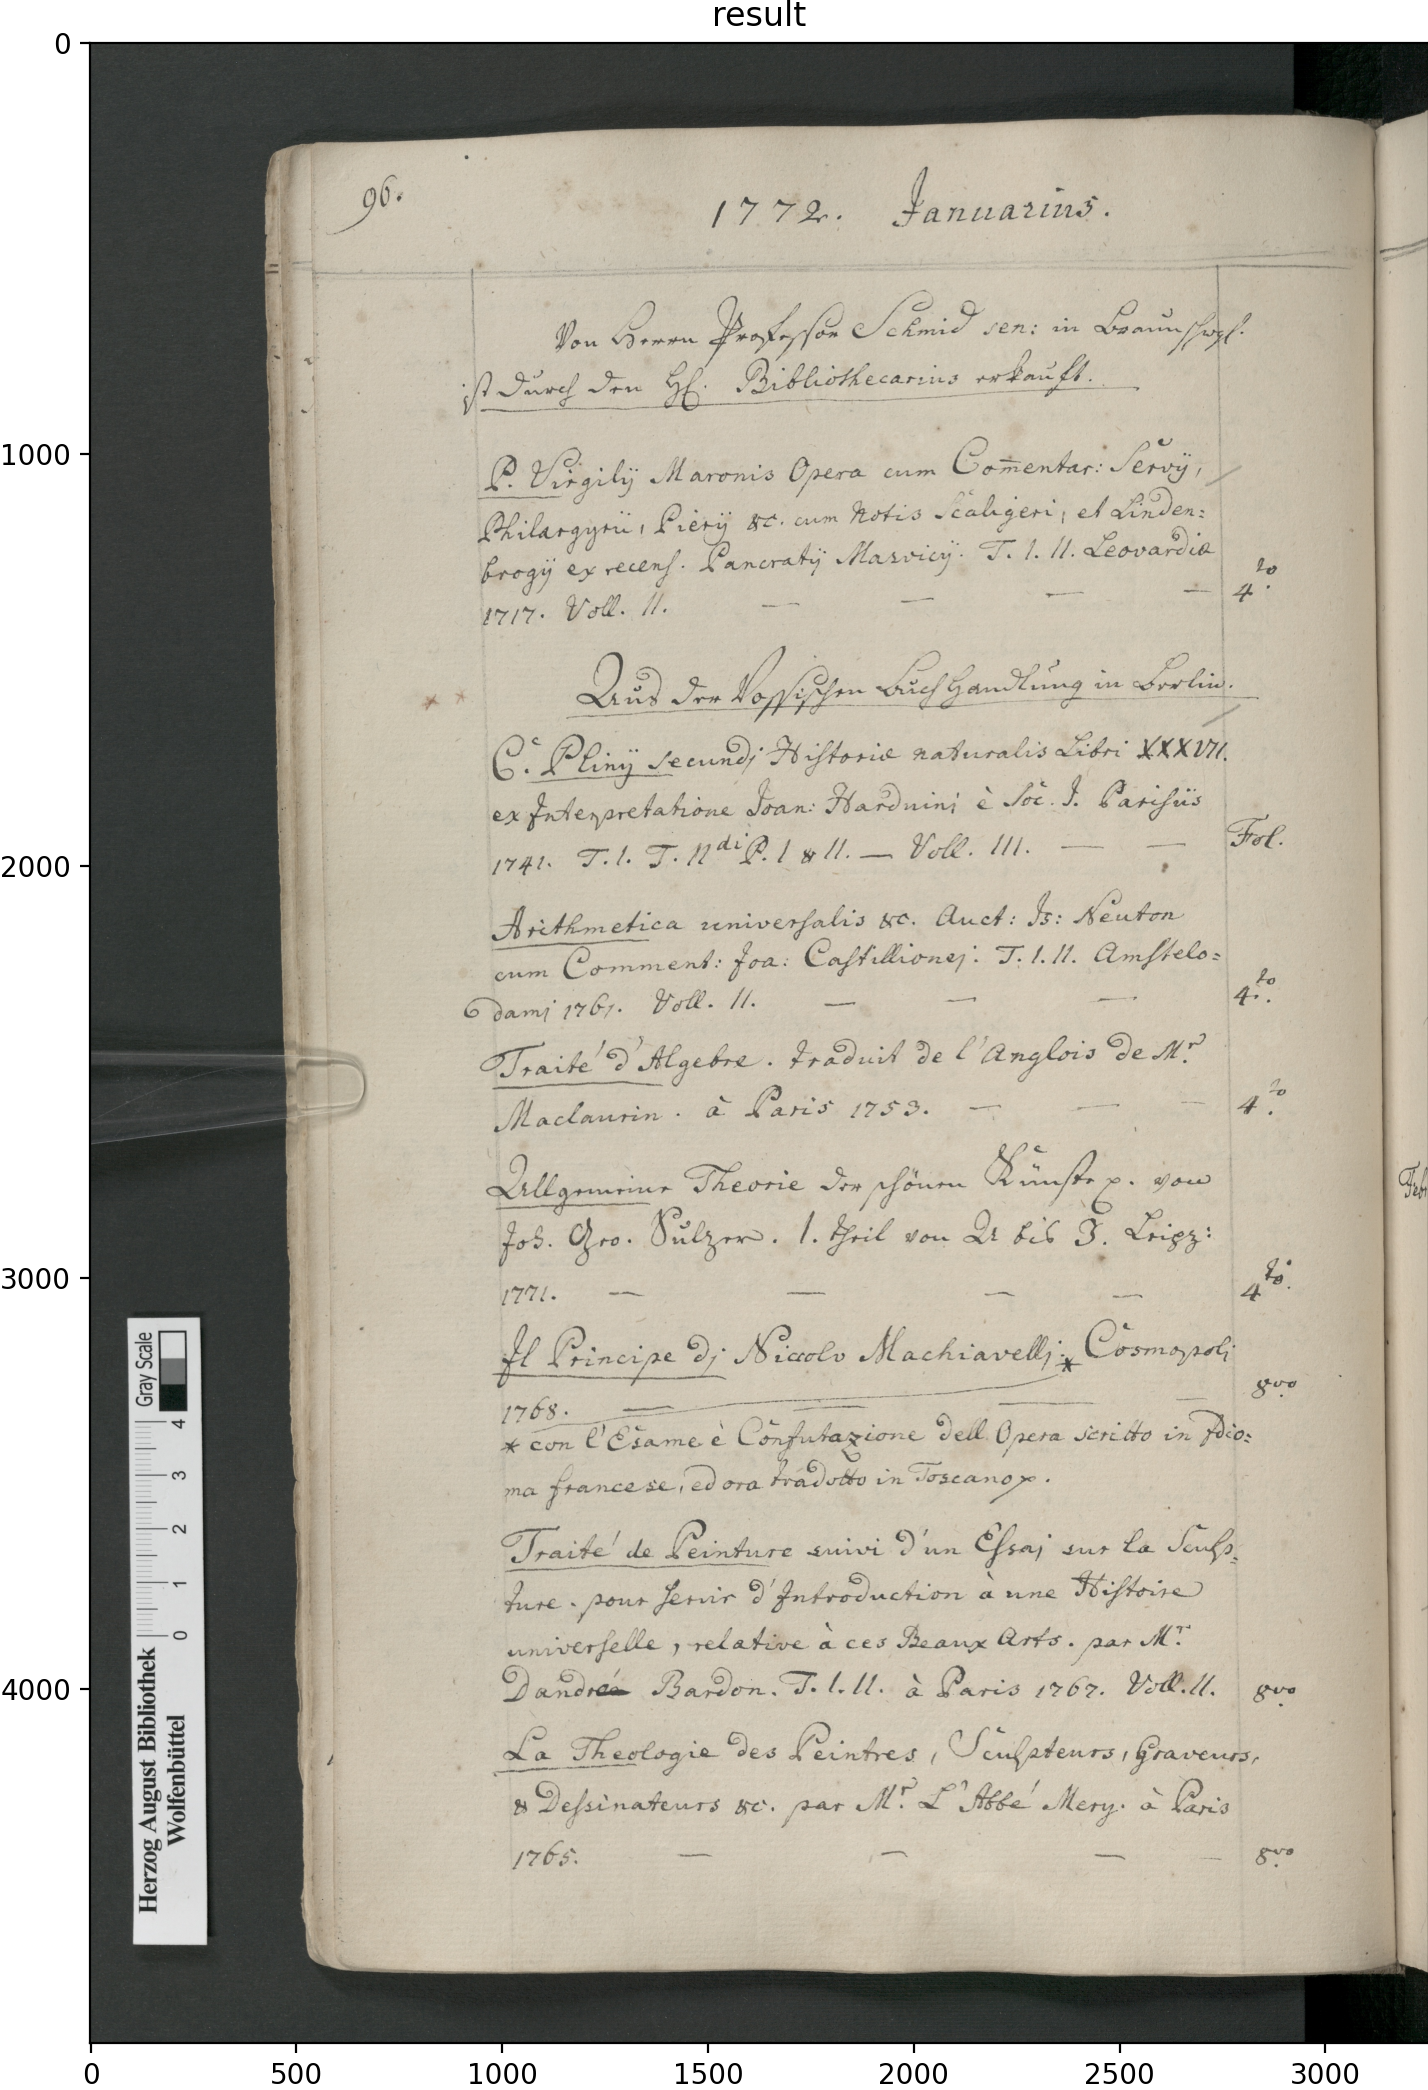 result
96.
1772. Januarius.
Von Herrn Professor Schmid sen: in Braunschwg.
ist durch den H. Bibliothecarius erkauft.
P. Virgilÿ Maronis Opera cum Com̅entar: Servÿ,
Philargyrii, Pierÿ &c. cum Notis Scaligeri, et Linden=
brogÿ ex recens. Pancratÿ Masvicÿ. T. I. II. Leovardiæ
1717. Voll. II. — — — — 4to.
Aus der Vossischen Buchhandlung in Berlin.
C. Plinÿ secundj Historiæ naturalis Libri XXXVII.
ex Interpretatione Joan: Harduinj è Soc. J. Parisiis
1741. T. I. T. IIdi P. I & II. — Voll. III. — — Fol.
Arithmetica universalis &c. Auct: Is: Neuton
cum Comment: Joa: Castillionej. T. I. II. Amstelo=
damj 1761. Voll. II. — — — 4to.
Traité d'Algebre. traduit de l'Anglois de Mr.
Maclaurin. à Paris 1753. — — — 4to.
Allgemeine Theorie der schönen Künste p. von
Joh. Geo. Sulzer. 1. Theil von A bis J. Leipz:
1771. — — — — 4to.
Il Principe dj Niccolo Machiavellj. * Cosmopolj
1768. — — — — 8vo
* con l'Esame è Confutazione dell Opera scritto in Idio=
ma francese, ed ora tradotto in Toscano p.
Traité de Peinture suivi d'un Essaj sur la Sculp=
ture. pour servir d'Introduction à une Histoire
universelle, relative à ces Beaux Arts. par Mr.
Dandré Bardon. T. I. II. à Paris 1767. Voll. II. 8vo
La Theologie des Peintres, Sculpteurs, Graveurs,
& Dessinateurs &c. par Mr. L'Abbé Mery. à Paris
1765. — — — — 8vo
Gray Scale
0 1 2 3 4
Herzog August Bibliothek
Wolfenbüttel
0
1000
2000
3000
4000
0 500 1000 1500 2000 2500 3000